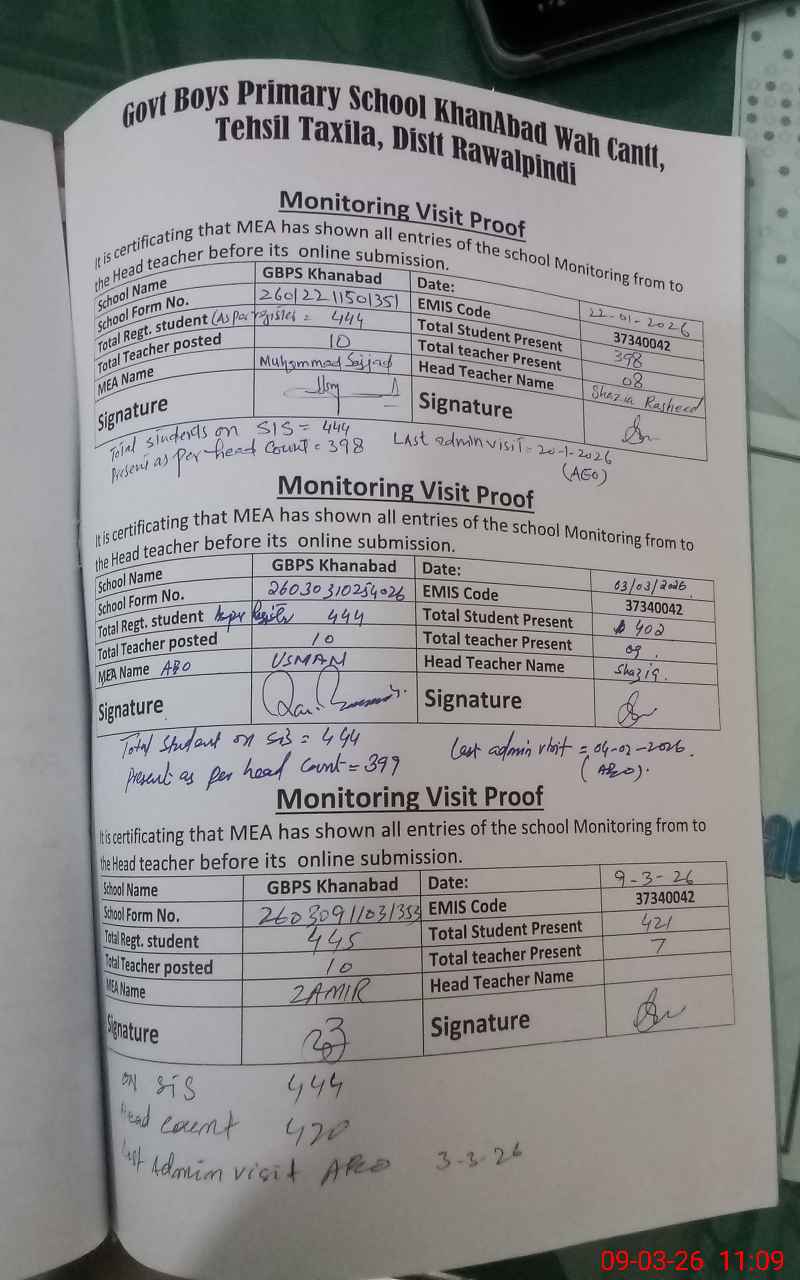 Govt Boys Primary School KhanAbad Wah Cantt,
Tehsil Taxila, Distt Rawalpindi
Monitoring Visit Proof
It is certificating that MEA has shown all entries of the school Monitoring from to
the Head teacher before its online submission.
School Name GBPS Khanabad Date: 22-01-2026
School Form No. 260122 11501351 EMIS Code 37340042
Total Regt. student (As per register = 444 Total Student Present 398
Total Teacher posted 10 Total teacher Present 08
MEA Name Muhammad Sajjad Head Teacher Name Shazia Rasheed
Signature Signature
Total students on SIS = 444
Present as per head count = 398 LAst admin visit = 20-1-2026
(AEO)
Monitoring Visit Proof
It is certificating that MEA has shown all entries of the school Monitoring from to
the Head teacher before its online submission.
School Name GBPS Khanabad Date: 03/03/2026
School Form No. 26030310254026 EMIS Code 37340042
Total Regt. student As per Register 444 Total Student Present 402
Total Teacher posted 10 Total teacher Present 09.
MEA Name AEO USMAN Head Teacher Name Shazia.
Signature Signature
Total Student on SIS = 444 Last admin visit = 04-02-2026.
Present as per head count = 399 (AEO).
Monitoring Visit Proof
It is certificating that MEA has shown all entries of the school Monitoring from to
the Head teacher before its online submission.
School Name GBPS Khanabad Date: 9-3-26
School Form No. 26030911031353 EMIS Code 37340042
Total Regt. student 445 Total Student Present 421
Total Teacher posted 10 Total teacher Present 7
MEA Name ZAMIR Head Teacher Name
Signature Signature
on SiS 444
Head count 420
Last Admin visit AEO 3-3-26
09-03-26 11:09